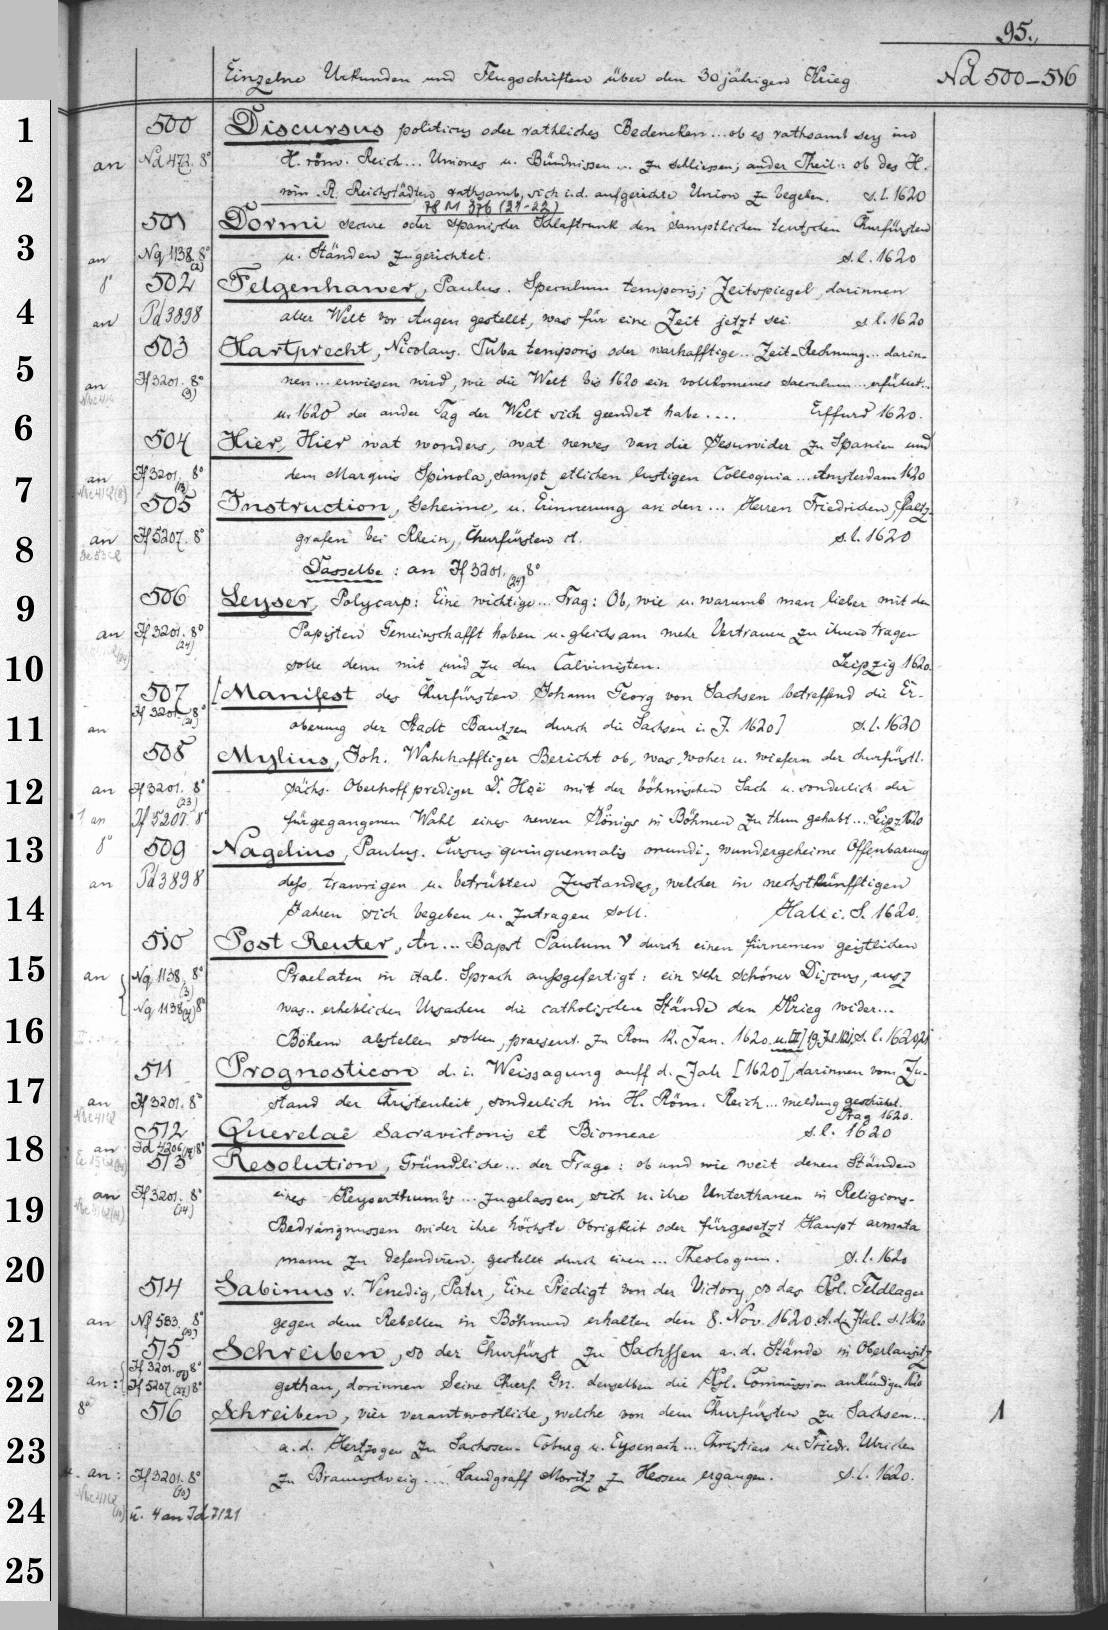 95.
Einzelne Urkunden und Flugschriften über den 30jährigen Krieg Nd 500-516
1
500 Discursus politicus oder rathliches Bedencken ... ob es rathsamb sey im
an Nd 473. 8° H. röm. Reich ... Uniones u. Bündnissen ... zu schliessen; ander Theil: ob des H.
2
röm. R. Reichstädten rathsamb, sich i. d. aufgerichte Union zu begeben. s. l. 1620
78 M 376 (21-22)
501 Dormi secure oder Spanischer Schlaftrunk den sämptlichen teutschen Churfürsten
3
an Nq 1138. 8° (2) u. Ständen zugerichtet. s. l. 1620
8° 502 Felgenhawer, Paulus. Speculum temporis; Zeitspiegel, darinnen
4
an Pd 3898 aller Welt vor Augen gestellt, was für eine Zeit jetzt sei. s. l. 1620
503 Hartprecht, Nicolaus. Tuba temporis oder warhafftige ... Zeit-Rechnung ... darin-
5
an If 3201. 8° (9) nen ... erwiesen wird, wie die Welt bis 1620 ein vollkomenes saeculum ... erfüllet ..
u. 1620 der ander Tag der Welt sich geendet habe .... Erffurd 1620.
6
504 Hier, Hier wat wonders, wat newes van die Jesuwider zu Spanien und
an If 3201. 8° dem Marquis Spinola, sampt etlichen lustigen Colloquia ... Amsterdam 1620
7
505 Instruction, Geheime, u. Erinnerung an den ... Herren Friedrichen, Pfaltz-
8
an If 5207. 8° grafen bei Rhein, Churfürsten s. l. 1620
Dasselbe: an If 3201. (24) 8°
9
506 Leyser, Polycarp: Eine wichtige ... Frag: Ob, wie u. warumb man lieber mit den
an If 3201. 8° (24) Papisten Gemeinschafft haben u. gleichsam mehr Vertrauen zu ihnen tragen
10
solle denn mit und zu den Calvinisten. Leipzig 1620.
507 [Manifest des Churfürsten Johann Georg von Sachsen betreffend die Er-
11
an If 3201. 8° oberung der Stadt Bautzen durch die Sachsen i. J. 1620] s. l. 1620
508 Mylius, Joh. Wahrhafftiger Bericht ob, was, woher u. wiefern der churfürstl.
12
an If 3201. 8° (23) sächs. Oberhoffprediger D. Hoë mit der böhmischen Sach u. sonderlich der
1 an If 5207. 8° fürgegangenen Wahl eines newen Königs in Böhmen zu thun gehabt ... Leipz. 1620
13
8° 509 Nagelius, Paulus. Cursus quinquennalis mundi; wundergeheime Offenbarung
an Pd 3898 dess trawrigen u. betrübten Zustandes, welcher in nechstkünfftigen
14
Jahren sich begeben u. zutragen soll. Hall i. S. 1620.
510 Post Reuter, An ... Bapst Paulum V durch einen fürnemen geistlichen
15
an Nq 1138. 8° (3) Praelaten in ital. Sprach aussgefertigt: ein sehr schöner Discurs, ausz
Nq 1138 8° was .. erheblichen Ursachen die catholischen Stände den Krieg wider ...
16
Böhem abstellen sollen, praesent. zu Rom 12. Jan. 1620. s. l. 1620
511 Prognosticon d. i. Weissagung auff d. Jahr [1620], darinnen vom Zu-
17
an If 3201. 8° stand der Christenheit, sonderlich im H. Röm. Reich ... meldung geschihet.
Prag 1620.
512 Querelae Sacravictonis et Biomeae s. l. 1620
18
an Id 4206 8°
513 Resolution, Gründliche ... der Frage: ob und wie weit denen Ständen
19
an If 3201. 8° (14) eines Keyserthumbs ... zugelassen, sich u. ihre Unterthanen in Religions-
Bedrängnussen wider ihre höchste Obrigkeit oder fürgesetzt Haupt armata
20
manu zu defendiren, gestellet durch einen ... Theologum. s. l. 1620
514 Sabinus v. Venedig, Pater, Eine Predigt von der Victory, so das Kgl. Feldlager
21
an 583. 8° gegen dem Rebellen in Böhmen erhalten den 8. Nov. 1620. A. d. Ital. s. l. 1620
515 Schreiben, so der Churfürst zu Sachssen a. d. Stände in Oberlausitz
22
an: If 3201. 8° If 5207 8° gethan, dorinnen Seine Churf. Gn. denselben die Kgl. Commission ankündigen
8° 516 Schreiben, vier verantwortliche, welche von dem Churfürsten zu Sachsen ... 1
23
a. d. Hertzogen zu Sachssen-Coburg u. Eysenach ... Christian u. Friedr. Ulrichen
an: If 3201. 8° (10) zu Braunschweig .... Landgraff Moritz z. Hessen ergangen. s. l. 1620.
24
u. 4 an Id 7121
25